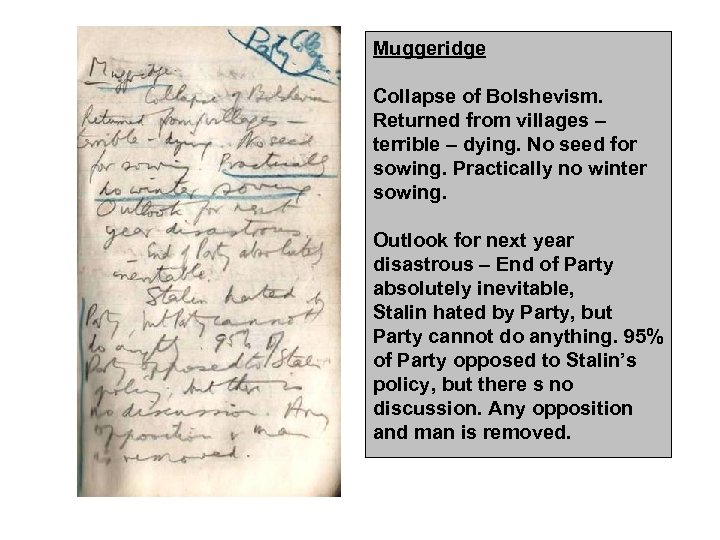 Party Collapse
Muggeridge
Collapse of Bolshevism
Returned from villages –
terrible – dying. No seed
for sowing. Practically
no winter sowing.
Outlook for next
year disastrous.
– End of Party absolutely
inevitable.
Stalin hated by
Party, but Party cannot
do anything. 95% of
Party opposed to Stalin's
policy, but there is
no discussion. Any
opposition & man
is removed.
Muggeridge
Collapse of Bolshevism.
Returned from villages –
terrible – dying. No seed for
sowing. Practically no winter
sowing.
Outlook for next year
disastrous – End of Party
absolutely inevitable,
Stalin hated by Party, but
Party cannot do anything. 95%
of Party opposed to Stalin’s
policy, but there s no
discussion. Any opposition
and man is removed.